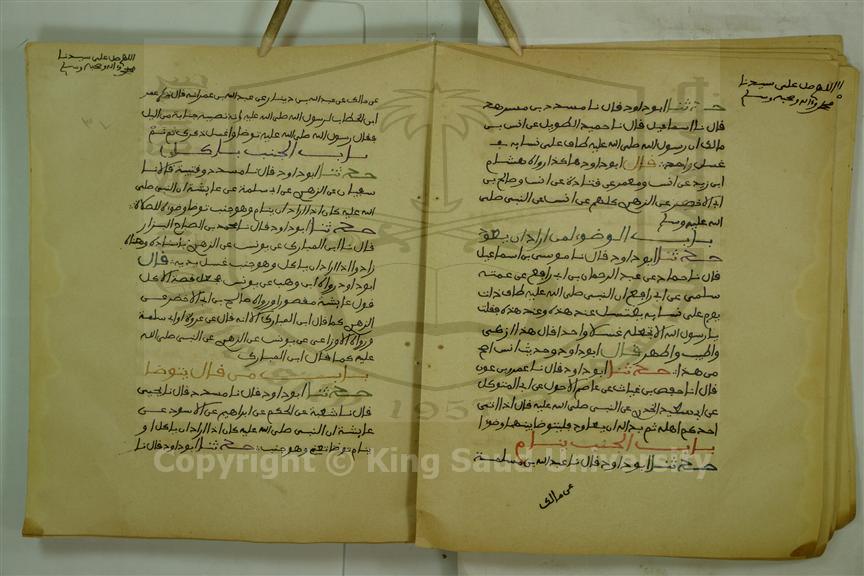 اللهم صل على سيدنا
محمد وآله وصحبه وسلم
حدثنا ابو داود قال نا مسدد بن مسرهد
قال نا اسماعيل قال نا حميد الطويل عن انس بن
مالك ان رسول الله صلى الله عليه طاف على نسايه بـ
غسل واحد قال ابو داود هاكذا رواه هشام
ابن زيد عن انس ومعمر عن قتادة عن انس وصالح بن
ابي الاخضر عن الزهري كلهم عن انس عن النبي صلى
الله عليه وسلم
باب الوضوء لمن اراد ان يعود
حدثنا ابو داود قال نا موسى بن اسماعيل
قال نا حماد عن عبد الرحمان بن ابي رافع عن عمته
سلمى عن ابي رافع ان النبي صلى الله عليه طاف ذات
يوم على نسايه يغتسل عند هذه وعند هذه فقلت
يا رسول الله الا تجعله غسلا واحدا قال هذا ازكى
واطيب واطهر قال ابو داود وحديث انس اصح
من هذا حدثنا ابو داود قال نا عمرو بن عون
قال انا حفص بن غياث عن عاصم الاحول عن ابي المتوكل
عن ابي سعيد الخدري عن النبي صلى الله عليه قال اذا اتى
احدكم اهله ثم بدا له ان يعاود فليتوضا بينهما وضوا
باب الجنب ينام
حدثنا ابو داود قال نا عبد الله بن مسلمة
عن مالك
اللهم صل على سيدنا
محمد وآله وصحبه وسلم
عن مالك عن عبد الله بن دينار عن عبد الله بن عمر انه قال ذكر عمر
ابن الخطاب لرسول الله صلى الله عليه انه تصيبه جنابة من الليل
فقال رسول الله صلى الله عليه توضا واغسل ذكرك ثم نم
باب الجنب ياكل
حدثنا ابو داود قال نا مسدد وقتيبة قالا نا
سفيان عن الزهري عن ابي سلمة عن عايشة ان النبي صلى
الله عليه كان اذا اراد ان ينام وهو جنب توضا وضوءه للصلاة
حدثنا ابو داود قال نا محمد بن الصباح البزاز
قال نا ابن المبارك عن يونس عن الزهري باسناده ومعناه
زاد واذا اراد ان ياكل وهو جنب غسل يديه قال
ابو داود رواه ابن وهب عن يونس فجعل قصة الاكل
قول عايشة مقصورا ورواه صالح بن ابي الاخضر عن
الزهري كما قال ابن المبارك الا انه قال عن عروة او ابي سلمة
ورواه الاوزاعي عن يونس عن الزهري عن النبي صلى الله
عليه كما قال ابن المبارك
باب من قال يتوضا
حدثنا ابو داود قال نا مسدد قال نا يحيى
قال نا شعبة عن الحكم عن ابراهيم عن الاسود عن
عايشة ان النبي صلى الله عليه كان اذا اراد ان ياكل او
ينام توضا تعني وهو جنب حدثنا ابو داود قال نا
1957
Copyright © King Saud University